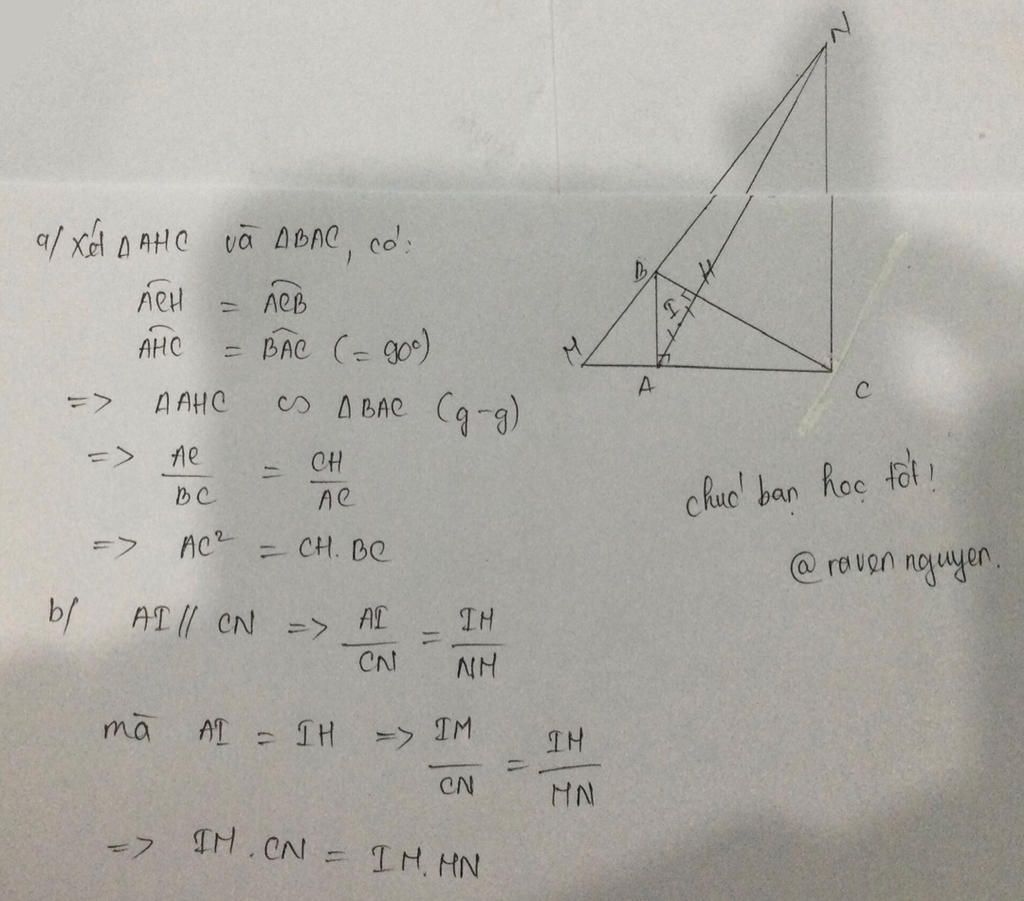 a/ Xét ΔAHC và ΔBAC, có:
ACH = ACB
AHC = BAC (= 90°)
=> ΔAHC ∽ ΔBAC (g-g)
=> AC/BC = CH/AC
=> AC² = CH.BC
b/ AI // CN => AI/CN = IH/NH
mà AI = IH => IM/CN = IH/HN
=> IH.CN = IH.HN
N
B
H
I
M
A
C
chuć bạn học tốt!
@ raven nguyen.